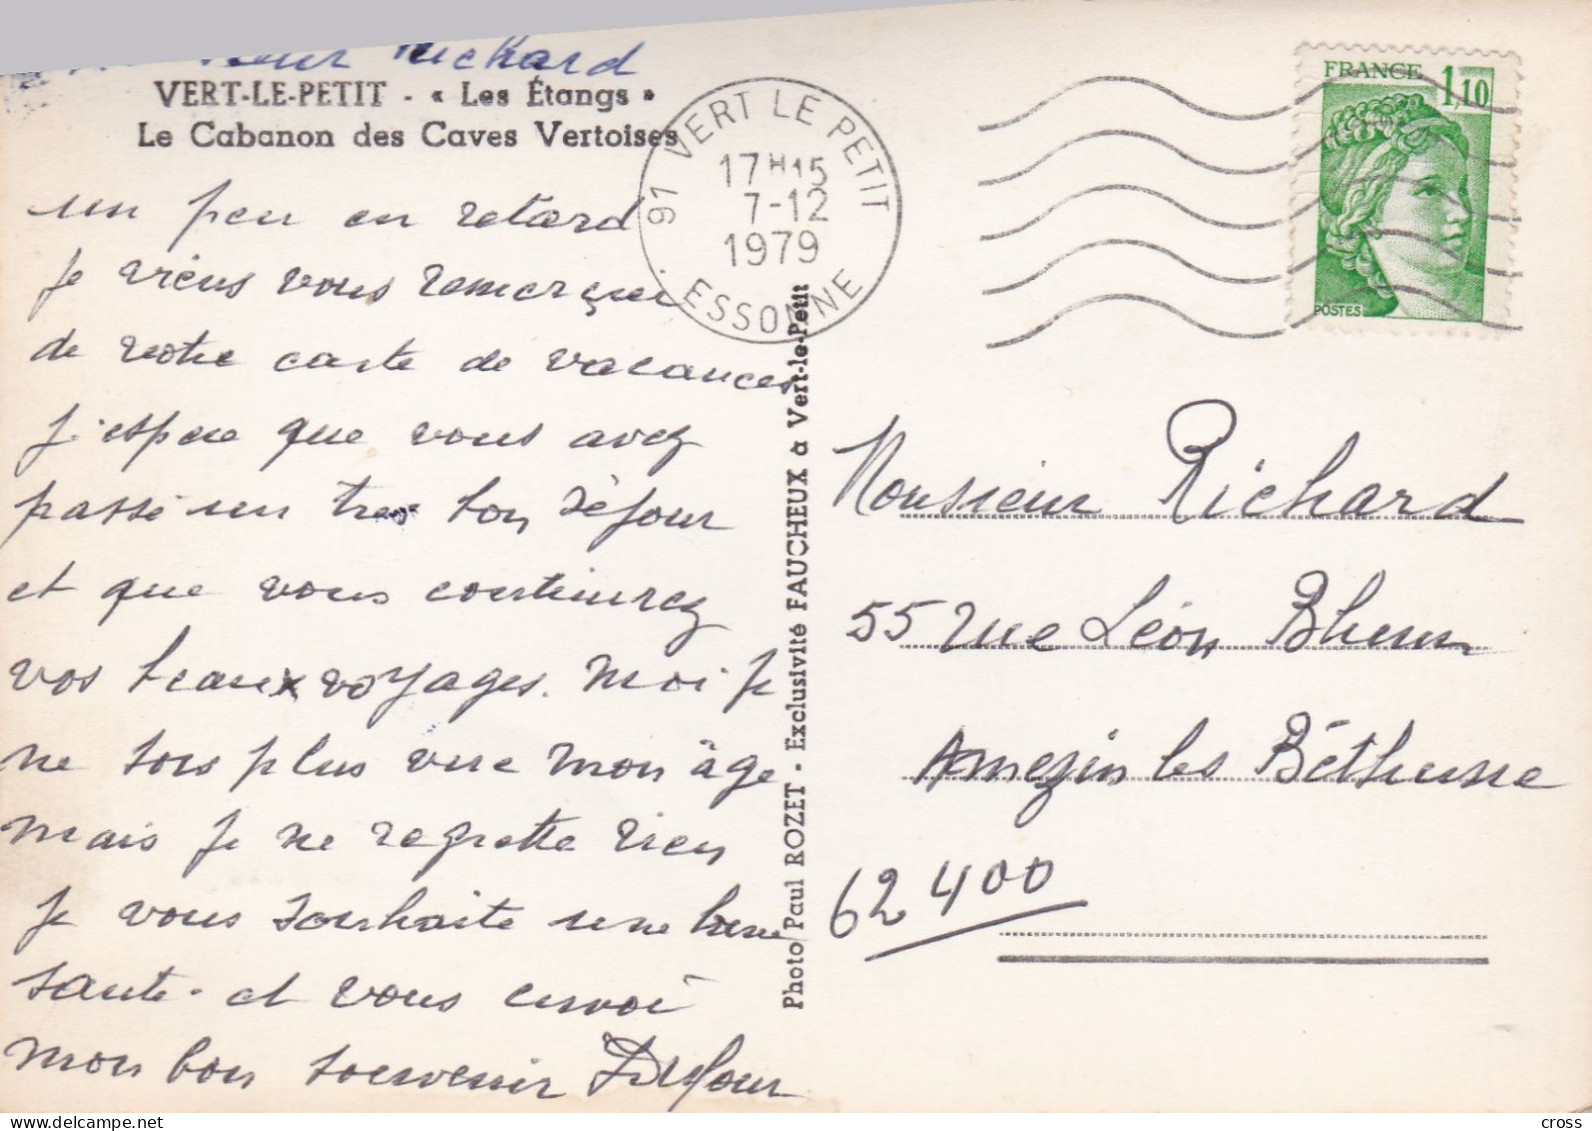 Richard
VERT-LE-PETIT - « Les Étangs »
Le Cabanon des Caves Vertoises
un peu en retard
je viens vous remerçier
de votre carte de vacances
j'espere que vous avez
passé un tres bon séjour
et que vous continurez
vos beaux voyages. Moi je
ne sors plus vue mon âge
mais je ne regrette rien
je vous souhaite une bone
sante. et vous envoi
mon bon souvenir Dufour
91 VERT LE PETIT
17H15
7-12
1979
ESSONNE
Photo Paul ROZET - Exclusivité FAUCHEUX à Vert-le-Petit
FRANCE 1,10
POSTES
Monsieur Richard
55 rue Léon Bhum
Annezin les Béthune
62400
cross